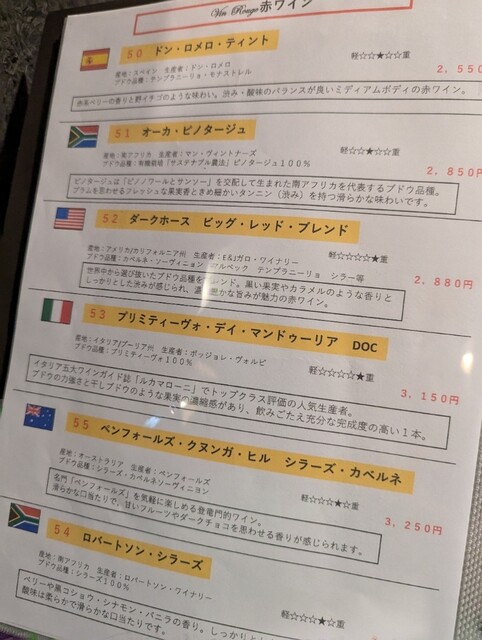 Vin Rouge 赤ワイン
50 ドン・ロメロ・ティント
産地：スペイン 生産者：ドン・ロメロ
ブドウ品種：テンプラニーリョ・モナストレル
軽☆☆★☆☆重
2,550
赤系ベリーの香りと野イチゴのような味わい。渋み・酸味のバランスが良いミディアムボディの赤ワイン。
51 オーカ・ピノタージュ
産地：南アフリカ 生産者：マン・ヴィントナーズ
ブドウ品種：有機栽培「サステナブル農法」ピノタージュ100％
軽☆☆★☆☆重
2,850円
ピノタージュは「ピノノワールとサンソー」を交配して生まれた南アフリカを代表するブドウ品種。
プラムを思わせるフレッシュな果実香ときめ細かいタンニン（渋み）を持つ滑らかな味わいです。
52 ダークホース ビッグ・レッド・ブレンド
産地：アメリカ/カリフォルニア州 生産者：E&Jガロ・ワイナリー
ブドウ品種：カベルネ・ソーヴィニョン マルベック テンプラニーリョ シラー等
軽☆☆☆☆★重
2,880円
世界中から選び抜いたブドウ品種をブレンド。黒い果実やカラメルのような香りと
しっかりとした渋みが感じられ、濃厚かな旨みが魅力の赤ワイン。
53 プリミティーヴォ・デイ・マンドゥーリア DOC
産地：イタリア/プーリア州 生産者：ポッジョレ・ヴォルピ
ブドウ品種：プリミティーヴォ100％
軽☆☆☆☆★重
3,150円
イタリア五大ワインガイド誌「ルカマローニ」でトップクラス評価の人気生産者。
ブドウの力強さと干しブドウのような果実の濃縮感があり、飲みごたえ充分な完成度の高い1本。
55 ペンフォールズ・クヌンガ・ヒル シラーズ・カベルネ
産地：オーストラリア 生産者：ペンフォールズ
ブドウ品種：シラーズ・カベルネソーヴィニヨン
軽☆☆☆★☆重
3,250円
名門「ペンフォールズ」を気軽に楽しめる登竜門的ワイン。
滑らかな口当たりで、甘いフルーツやダークチョコを思わせる香りが感じられます。
54 ロバートソン・シラーズ
産地：南アフリカ 生産者：ロバートソン・ワイナリー
ブドウ品種：シラーズ100％
軽☆☆☆★☆重
ベリーや黒コショウ・シナモン・バニラの香り。しっかりとし
酸味は柔らかで滑らかな口当たりです。